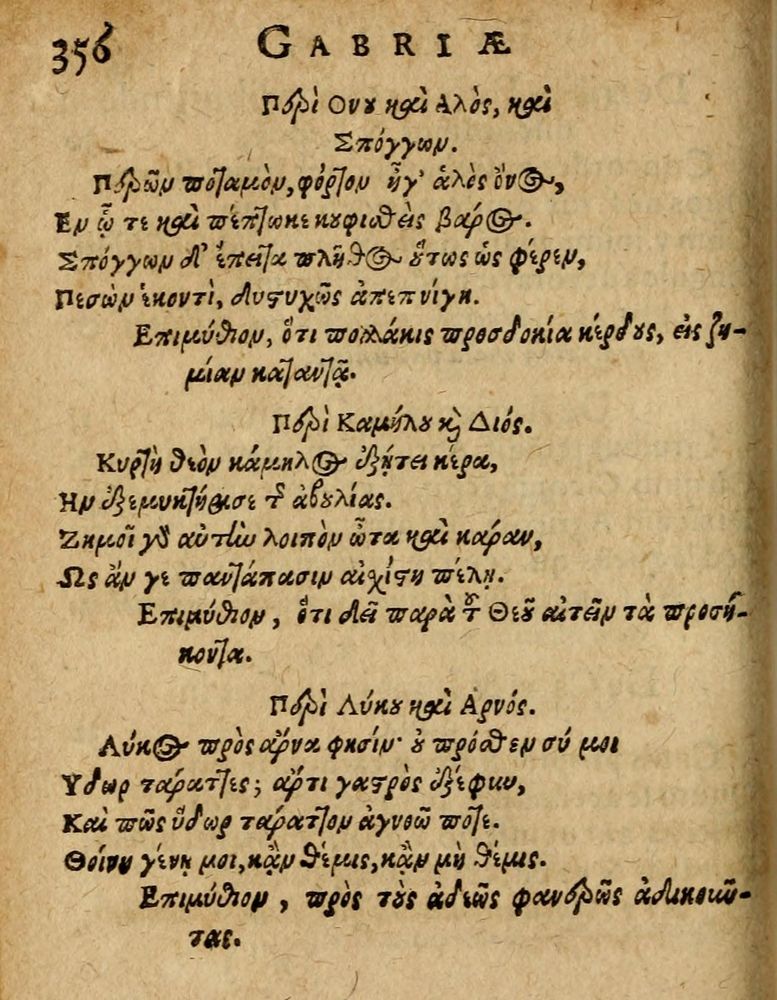 356 GABRIÆ
Περὶ Ὄνου καὶ Ἁλὸς, καὶ
Σπόγγων.
Περῶν ποταμὸν, φόρτον ἦγ' ἁλὸς ὄνος,
Ἐν ᾧ τε καὶ πέπτωκε κουφισθεὶς βάρος.
Σπόγγων δ' ἔπειτα πλῆθος οὕτως ὡς φέρεν,
Πεσὼν ἑκοντὶ, δυστυχῶς ἀπεπνίγη.
Επιμύθιον, ὅτι πολλάκις προσδοκία κέρδους, εἰς ζη-
μίαν καταντᾷ.
Περὶ Καμήλου καὶ Διός.
Κυρτὴ θεὸν κάμηλος ἐξῄτει κέρα,
Ἣν ἐξεμυκτήρισε τῆς ἀβουλίας.
Ζημοῖ γὰρ αὐτὴν λοιπὸν ὦτα καὶ κάραν,
Ὡς ἄν γε παντάπασιν αἰχίστη πέλῃ.
Επιμύθιον, ὅτι δεῖ παρὰ τοῦ Θεοῦ αἰτεῖν τὰ προσή-
κοντα.
Περὶ Λύκου καὶ Ἀρνός.
Λύκος πρὸς ἄρνα φησίν· οὐ πρόσθεν σύ μοι
Ὕδωρ ταράττεις; ἄρτι γαστρὸς ἐξέφυν,
Καὶ πῶς ὕδωρ ταράττον ἀγνοῶ ποτε.
Θοίνη γένῃ μοι, κᾂν θέμις, κᾂν μὴ θέμις.
Επιμύθιον, πρὸς τοὺς ἀδεῶς φανερῶς ἀδικοῦν-
τας.